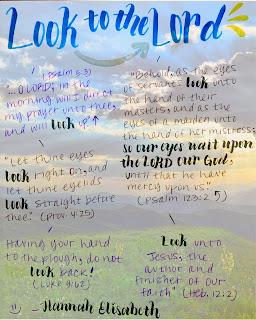 Look to the Lord
(Psalm 5:3)
... O LORD; in the
morning will I direct
my prayer unto thee,
and will look up ↑
"Let thine eyes
look right on, and
let thine eyelids
look straight before
thee." (Prov. 4:25)
Having your hand
to the plough, do not
look back!
(Luke 9:62)
"Behold, as the eyes
of servants look unto
the hand of their
masters, and as the
eyes of a maiden unto
the hand of her mistress;
so our eyes wait upon
the LORD our God,
until that he have
mercy upon us."
(Psalm 123:2)
Look unto
Jesus, the
author and
finisher of our
faith" (Heb. 12:2)
=) - Hannah Elisabeth